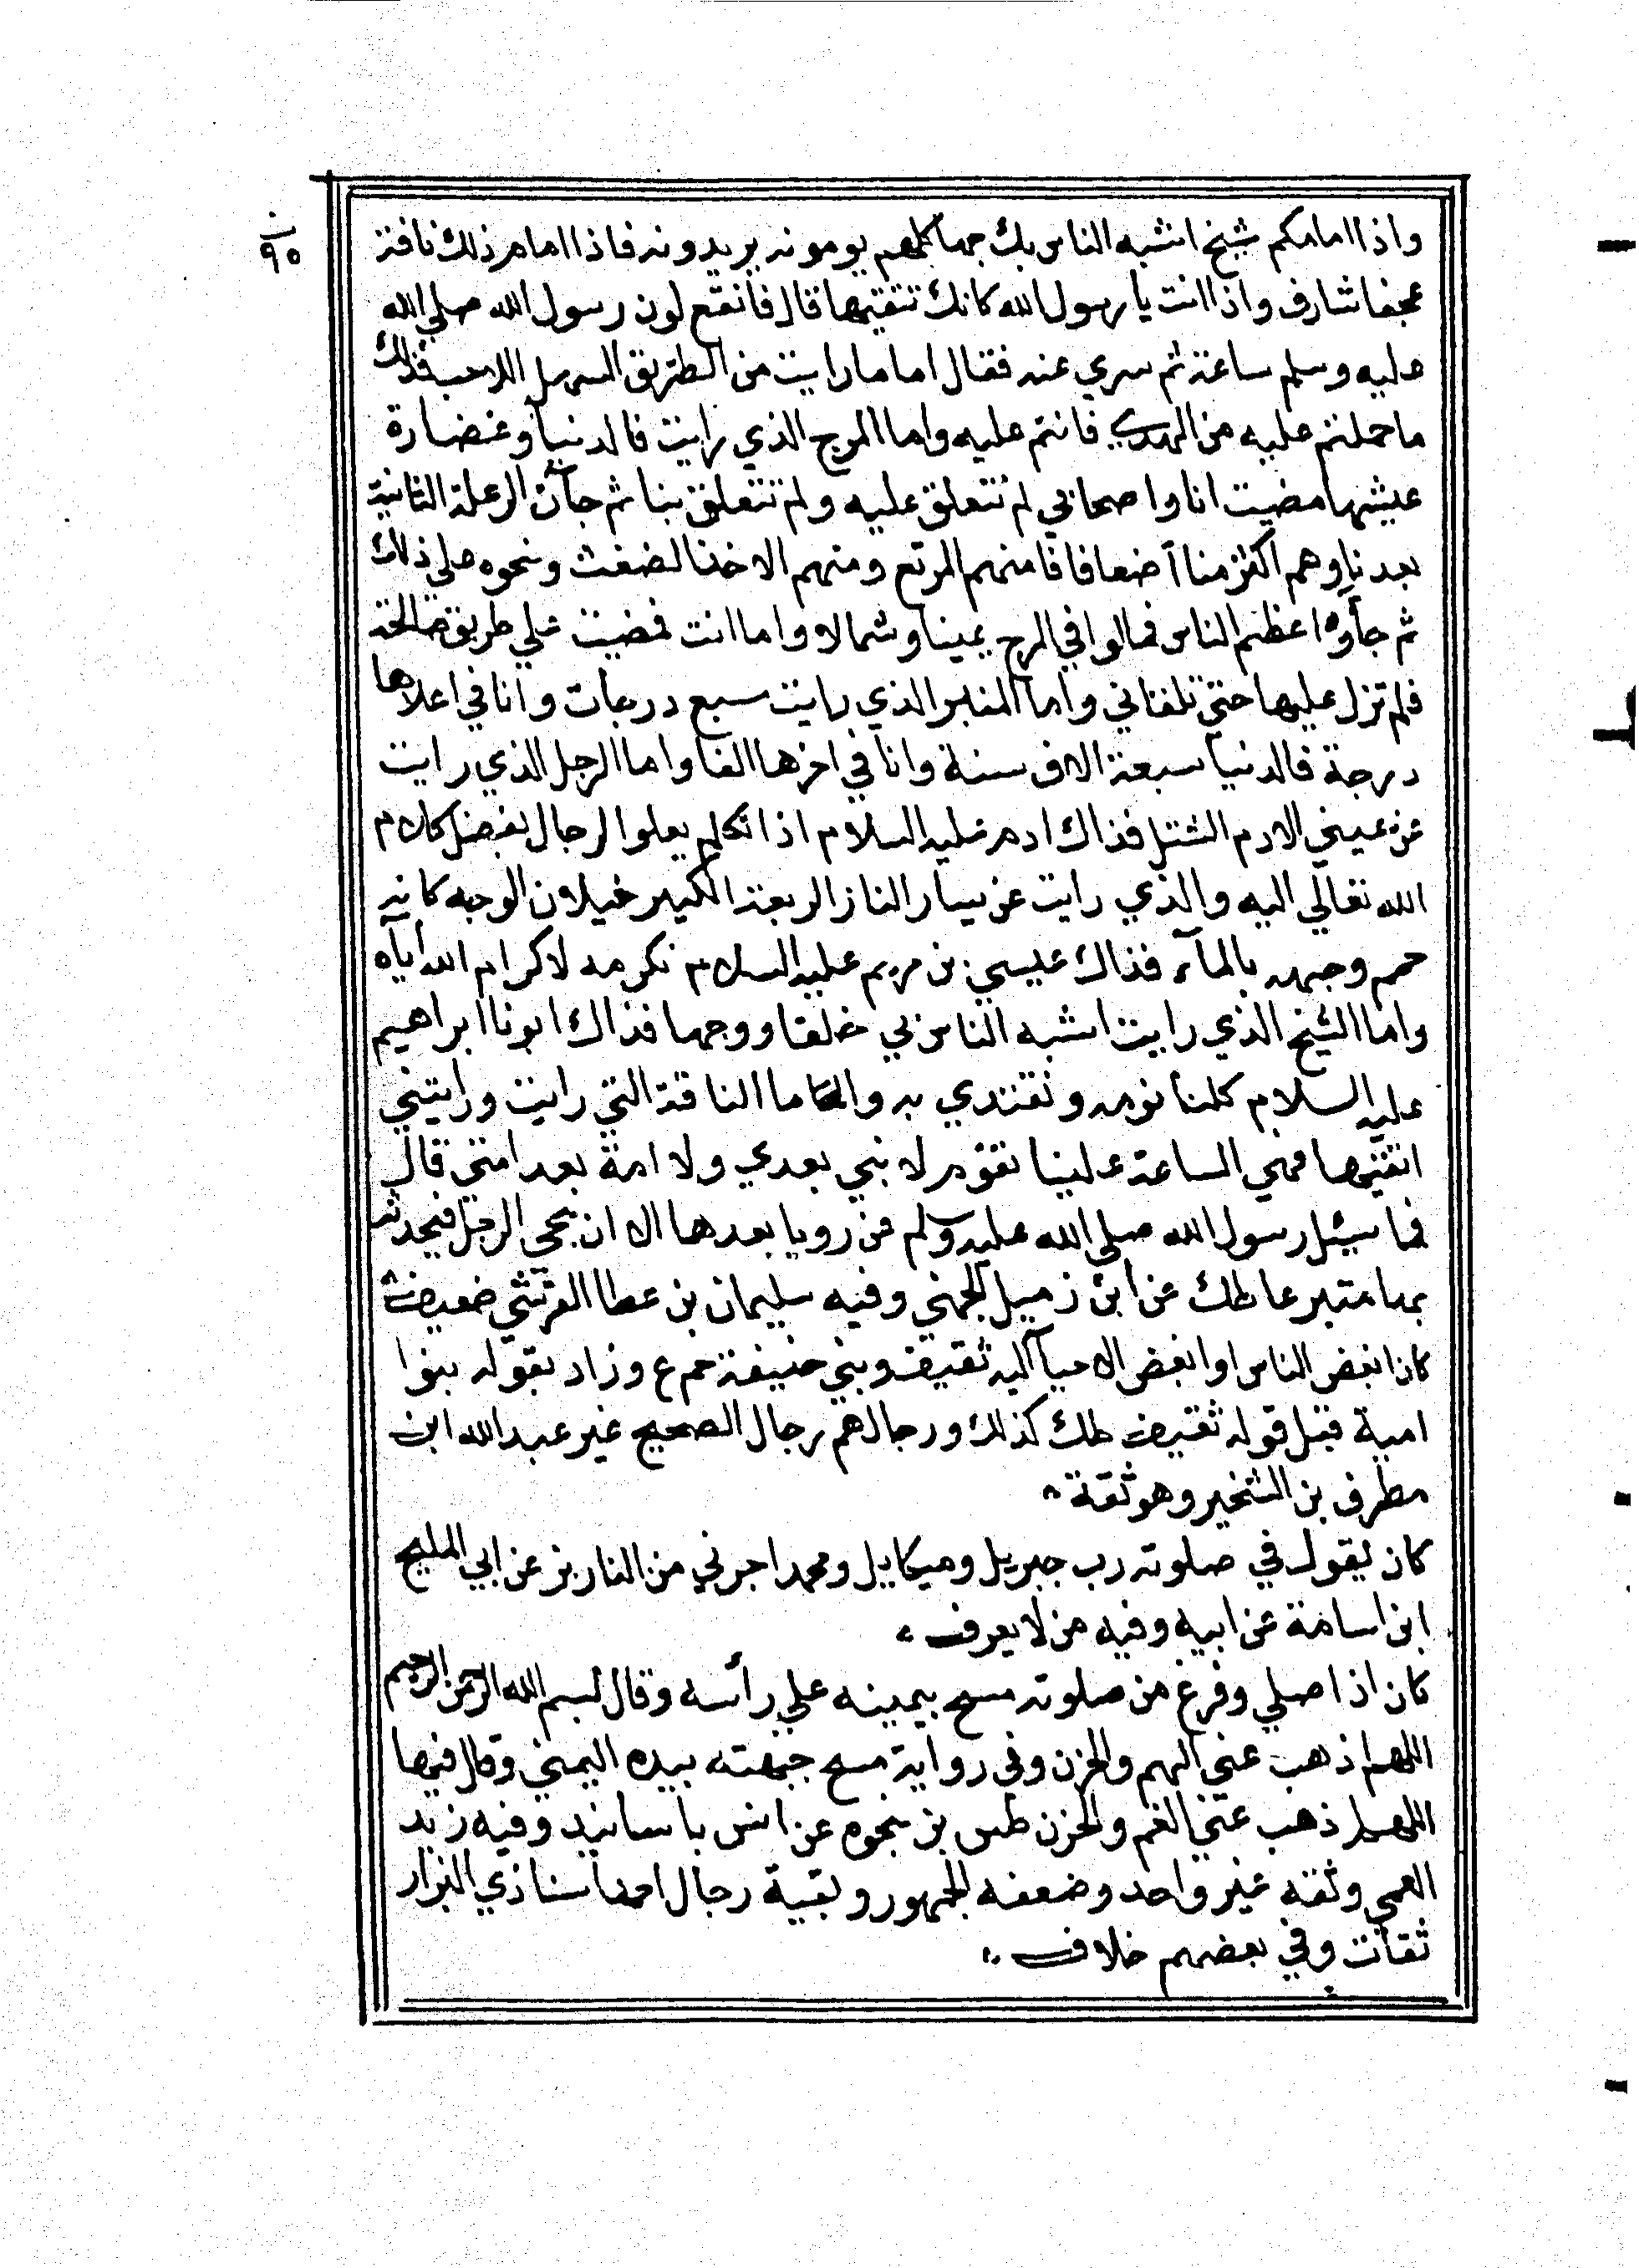 ٩٥
واذا امامكم شيخ اشبه الناس بك جها كلهم يومونه يريدونه فاذا امام ذلك ناقة
عجفا شارف واذا انت يا رسول الله كانك تتقيها قال فانقع لون رسول الله صلي الله
عليه وسلم ساعة ثم سري عنه فقال اما ما رايت من الطريق السهل اللاحب فذلك
ما حملتم عليه من الهدي فانتم عليه واما المرج الذي رايت فالدنيا وغضارة
عيشها مضيت انا واصحابي لم نتعلق عليه ولم تتعلق بنا ثم جآت الرعلة الثانية
بعدنا وهم اكثر منا اضعافا فامنهم المرتع ومنهم الاخذ الضغث ونحوه علي ذلك
ثم جآوه اعظم الناس فمالوا في المرج يمينا وشمالا واما انت فمضيت علي طريق صالحة
فلم تزل عليها حتي تلقاني واما المنبر الذي رايت سبع درجات وانا في اعلاها
درجة فالدنيا سبعة الاف سنة وانا في اخرها الفا واما الرجل الذي رايت
عن عيني الادم الشثل فذاك ادم عليه السلام اذا تكلم يعلوا الرجال بفضل كلام
الله تعالي اليه والذي رايت عن يسار الناز الربعة الكبير خيلان الوجه كانه
حمم وجهه بالمآء فذاك عيسي بن مريم عليه السلام نكرمه لاكرام الله اياه
واما الشيخ الذي رايت اشبه الناس بي خلقا ووجها فذاك ابونا ابراهيم
عليه السلام كلنا نومه ونقتدي به واما الناقة التي رايت ورايتني
اتقيها فهي الساعة علينا تقوم لا نبي بعدي ولا امة بعد امتي قال
فما سئل رسول الله صلي الله عليه وسلم من رويا بعدها الا ان يجي الرجل فيحدثه
بها متبرعا طك عن ابن زميل الجهني وفيه سليمان بن عطا القرشي ضعيف
كان ابغض الناس او ابغض الاحيآ اليه ثقيف وبني حنيفة حم ع وزاد بقوله بنوا
امية قبل قوله ثقيف طك كذلك ورجالهم رجال الصحيح غير عبد الله ابن
مطرف بن الشخير وهو ثقة
كان يقول في صلوته رب جبريل وميكايل ومحمد اجرني من النار بز عن ابي المليح
ابن اسامة عن ابيه وفيه من لا يعرف
كان اذا صلي وفرغ من صلوته مسح بيمينه علي رأسه وقال بسم الله الرحمن الرحيم
اللهم اذهب عني الهم والحزن وفي رواية مسح جبهته بيده اليمني وقال فيها
اللهم اذهب عني الغم والحزن طس بز بنحوه عن انس باسانيد وفيه زيد
العمي وثقه غير واحد وضعفه الجمهور وبقية رجال احد اسنادي البزار
ثقات وفي بعضهم خلاف